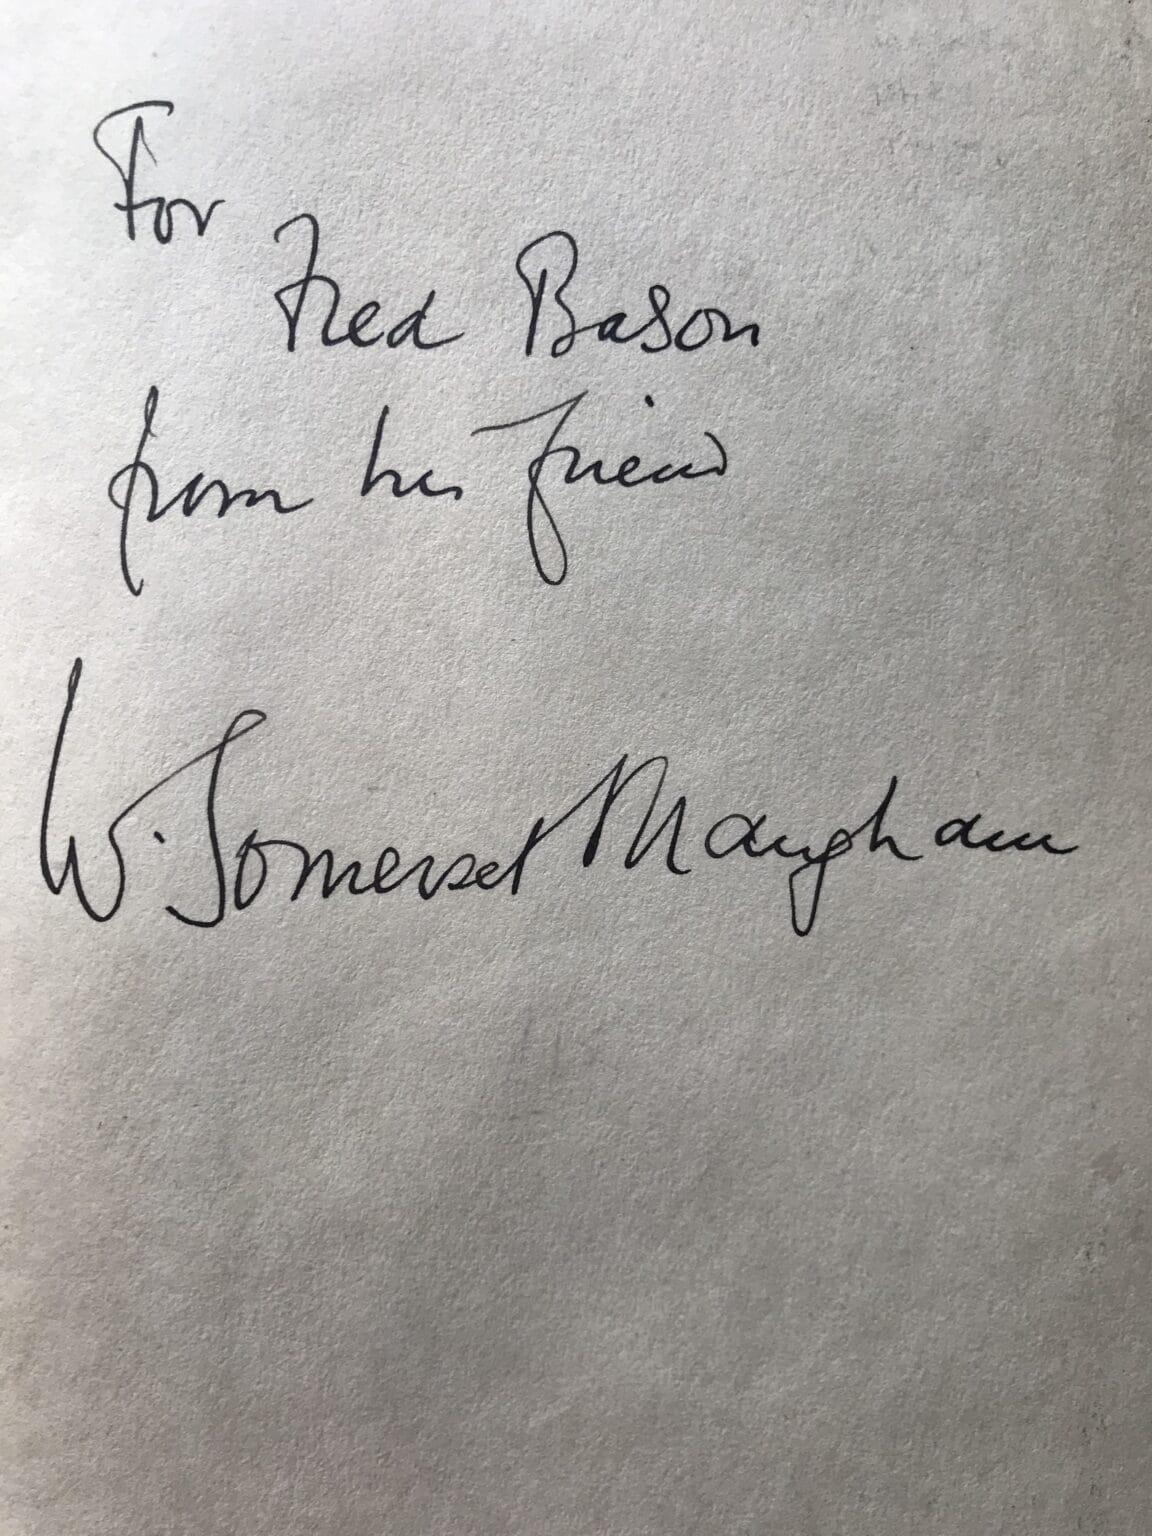 For
Fred Bason
from his friend
W. Somerset Maugham